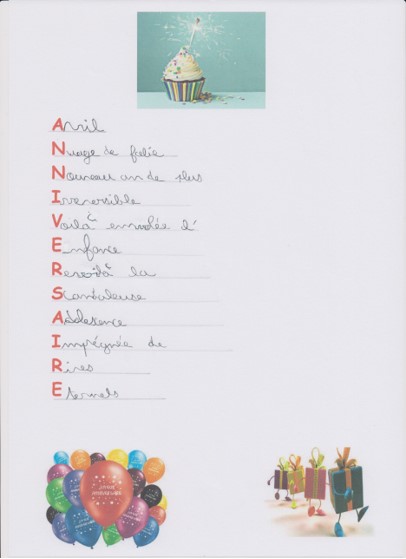 Avril
Nuage de folie
Nouveau an de plus
Irreversible
Voilà envolée d'
Enfance
Revoilà la
Scandaleuse
Adolescence
Imprégnée de
Rires
Eternels
JOYEUX
ANNIVERSAIRE